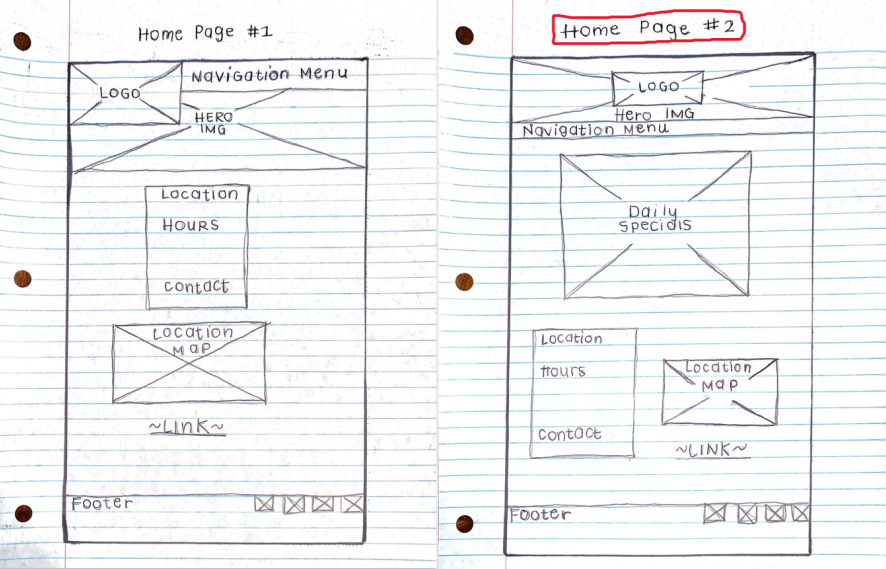 Home Page #1
LOGO
Navigation Menu
HERO
IMG
Location
HOURS
Contact
Location
Map
~LINK~
Footer
Home Page #2
LOGO
Hero IMG
Navigation Menu
Daily
Specials
Location
Hours
Contact
Location
Map
~LINK~
Footer